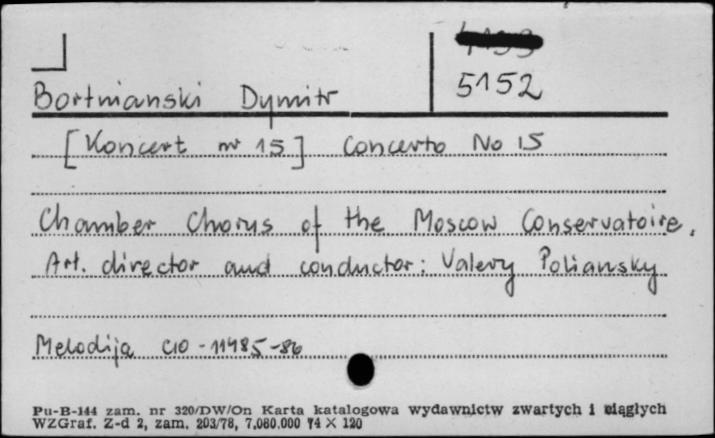 5152
Bortnianski Dymitr
[Koncert nr 15] Concerto No 15
Chamber Chorus of the Moscow Conservatoire.
Art. director and conductor: Valery Poliansky
Melodija C10-11485-86
Pu-B-144 zam. nr 320/DW/On Karta katalogowa wydawnictw zwartych i ciągłych
WZGraf. Z-d 2, zam. 203/78, 7,080.000 74 X 120